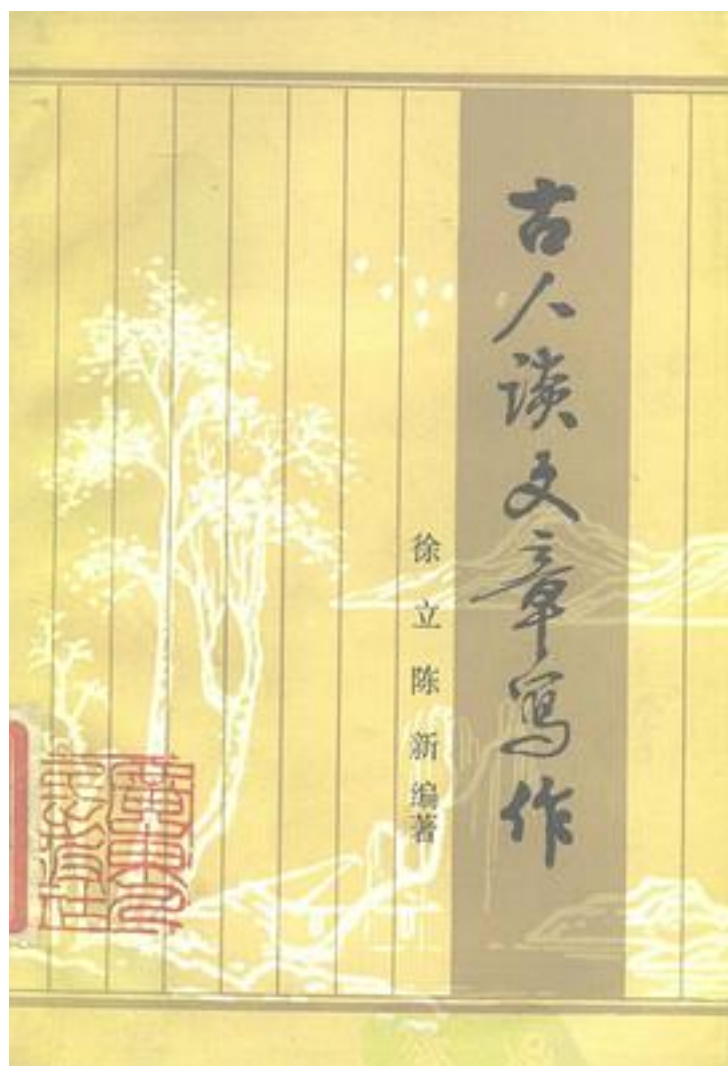 古人谈文章写作
徐立陈新编著